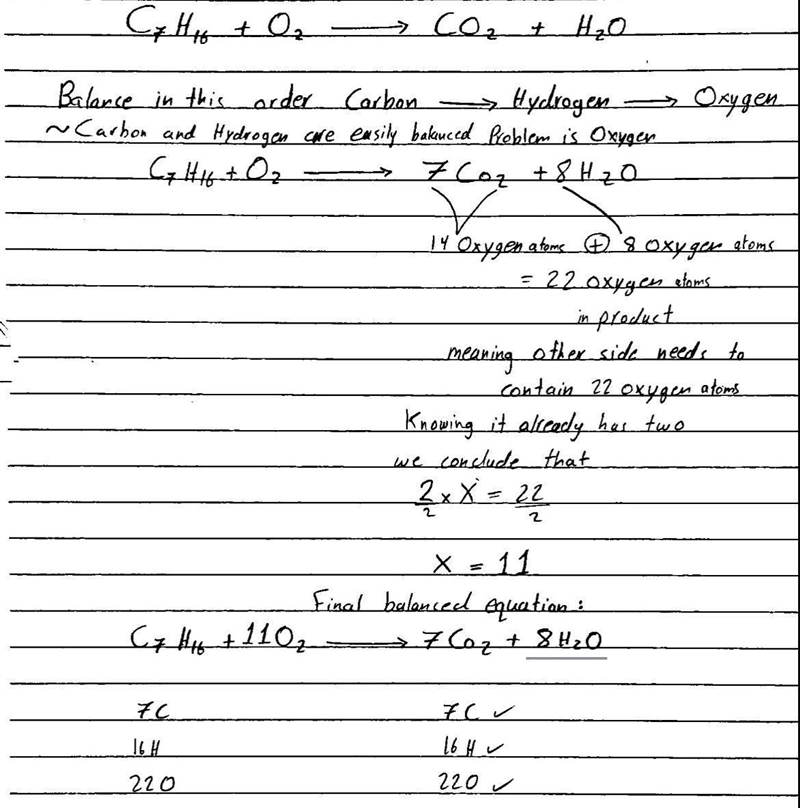 C₇H₁₆ + O₂ ⟶ CO₂ + H₂O
Balance in this order Carbon ⟶ Hydrogen ⟶ Oxygen
~ Carbon and Hydrogen are easily balanced Problem is Oxygen
C₇H₁₆ + O₂ ⟶ 7Co₂ + 8H₂O
14 Oxygen atoms ⊕ 8 Oxygen atoms
= 22 oxygen atoms
in product
meaning other side needs to
contain 22 oxygen atoms
Knowing it already has two
we conclude that
2/2 × X = 22/2
X = 11
Final balanced equation:
C₇H₁₆ + 11O₂ ⟶ 7Co₂ + 8H₂O
7C 7C ✓
16H 16H ✓
22O 22O ✓